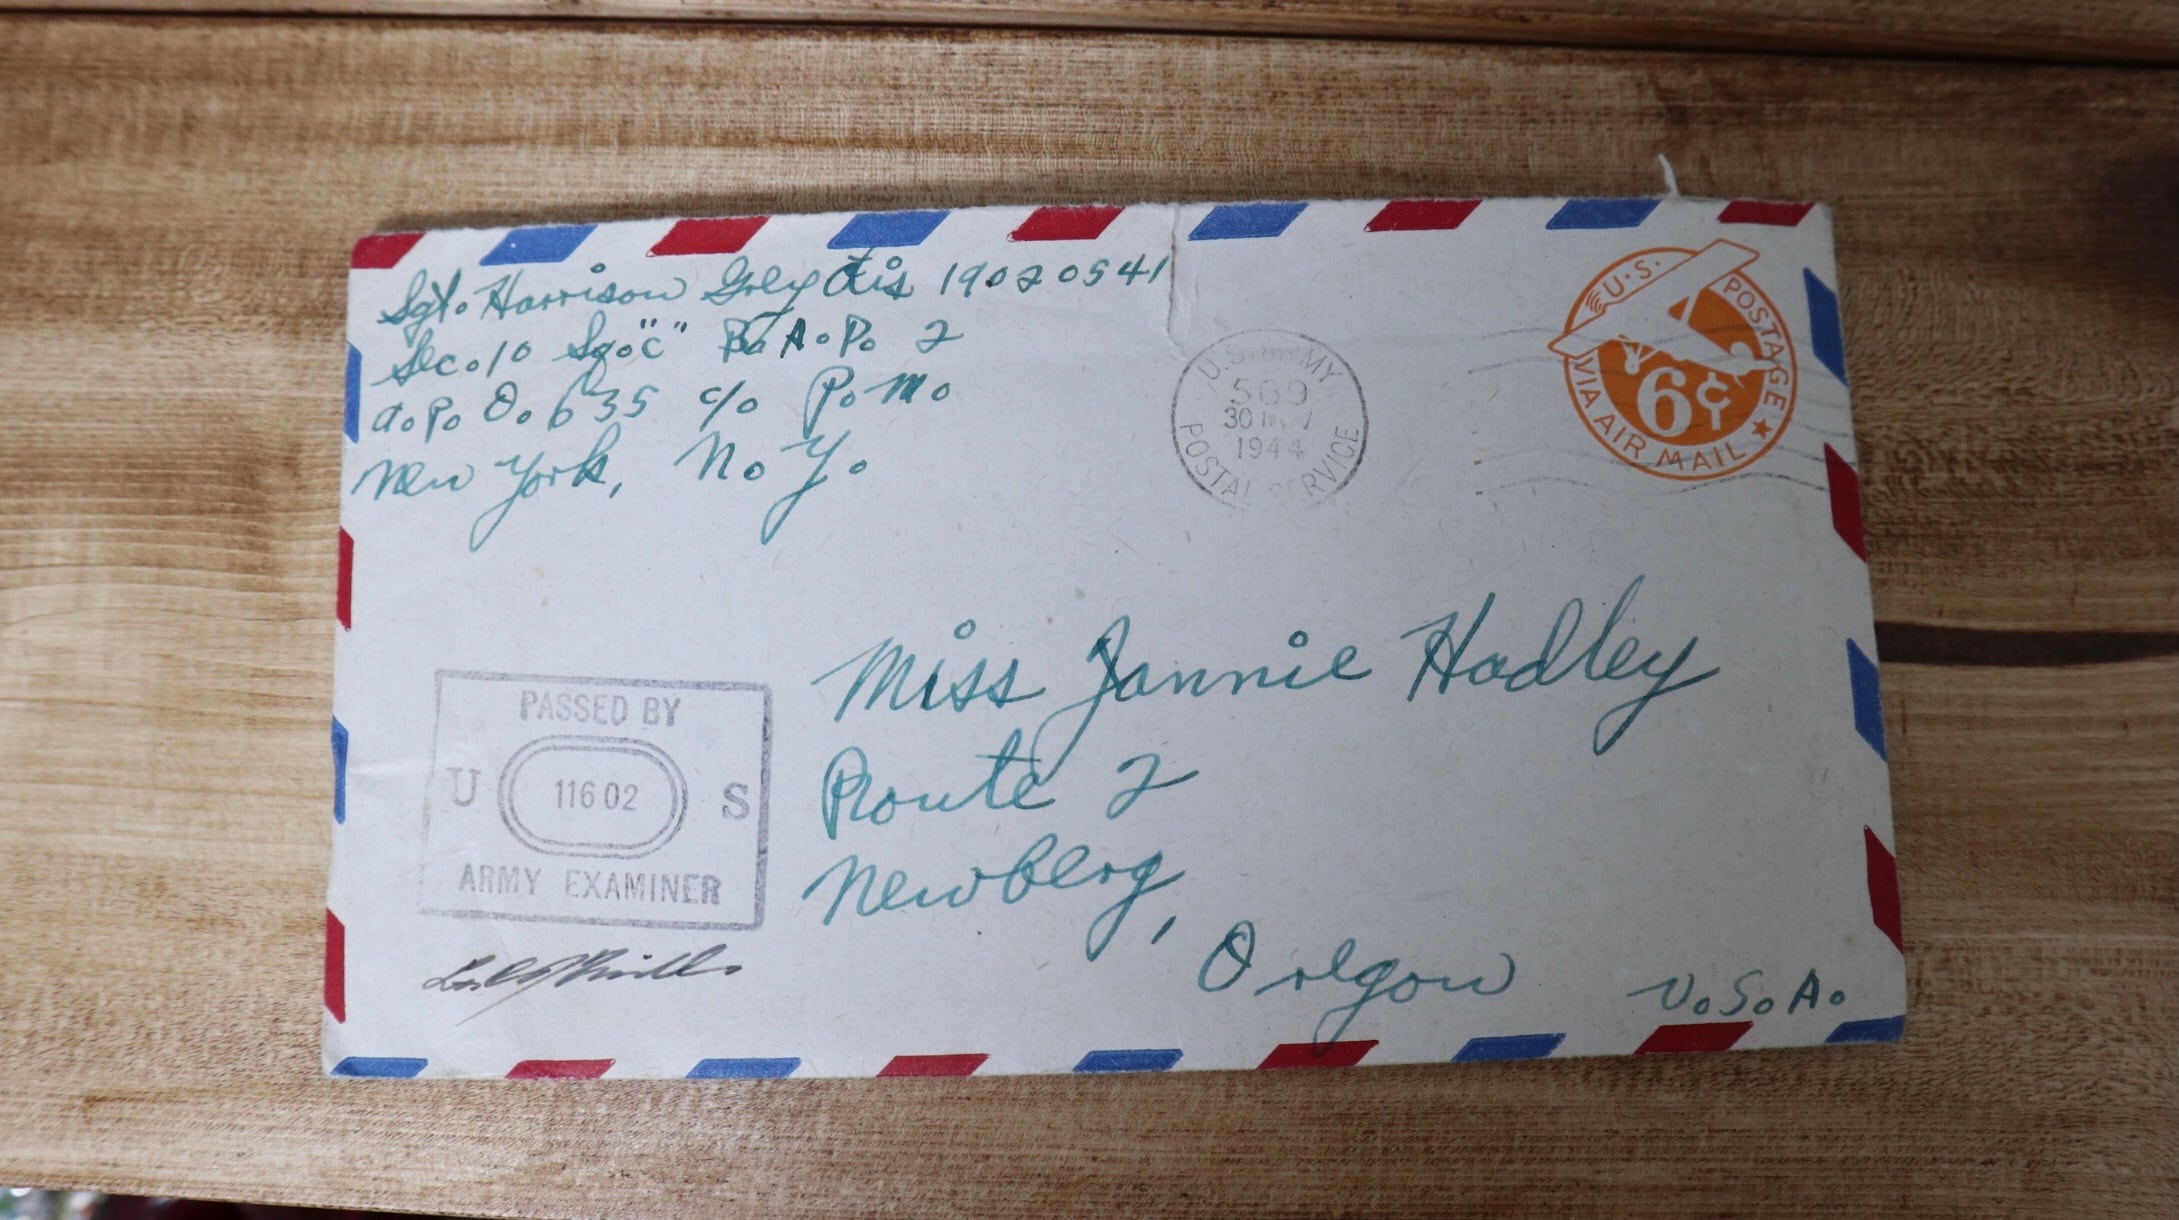 Sgt. Harrison 19020541
Sec. 10 Sq. "C" B.A.P.O. 2
A.P.O. 635 c/o P.M.
New York, N.Y.
U.S. ARMY
30 1944
POSTAL SERVICE
U.S. POSTAGE
6¢
VIA AIR MAIL
Miss Jannie Hadley
Route 2
Newberg,
Oregon U.S.A.
PASSED BY
U 11602 S
ARMY EXAMINER